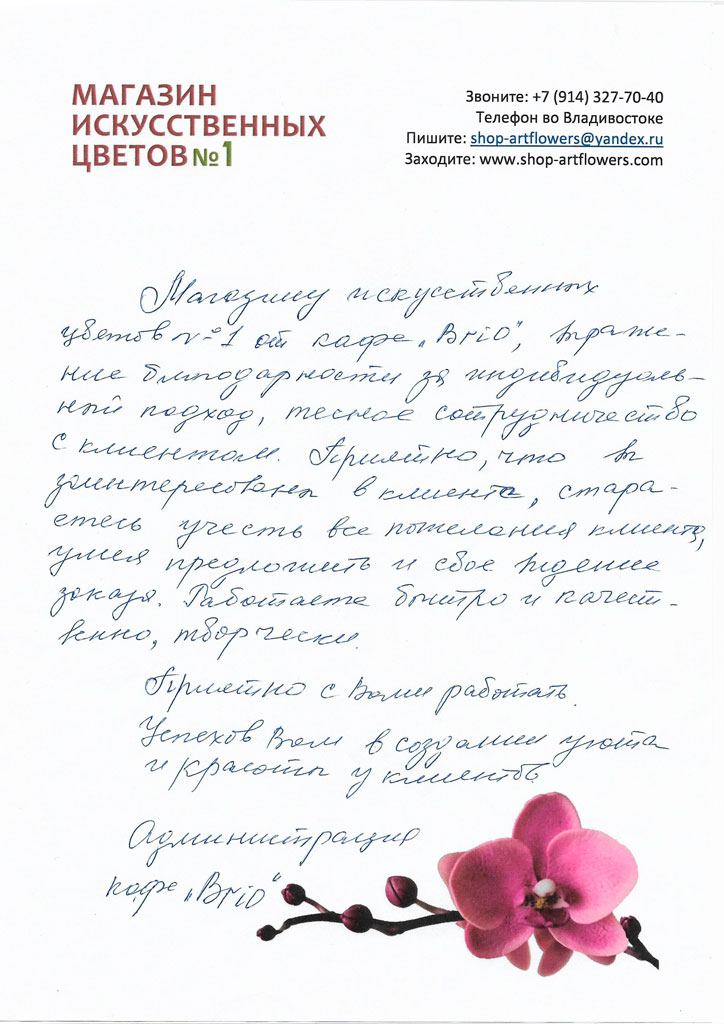 МАГАЗИН
ИСКУССТВЕННЫХ
ЦВЕТОВ №1
Звоните: +7 (914) 327-70-40
Телефон во Владивостоке
Пишите: shop-artflowers@yandex.ru
Заходите: www.shop-artflowers.com
Магазину искусственных
цветов №1 от кафе „Brio", выраже-
ние благодарности за индивидуаль-
ный подход, тесное сотрудничество
с клиентом. Приятно, что вы
заинтересованы в клиенте, стара-
етесь учесть все пожелания клиента,
умея предложить и свое видение
заказа. Работаете быстро и качест-
венно, творчески.
Приятно с Вами работать.
Успехов Вам в создании уюта
и красоты у клиентов
Администрация
кафе „Brio"